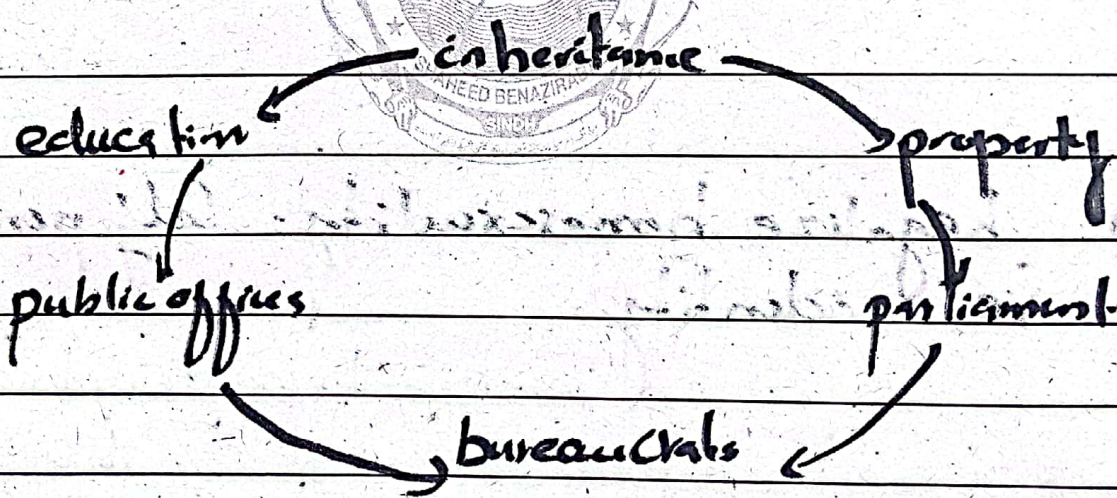 inheritance
SHAHEED BENAZIRABAD
SINDH
education property
public offices parliament
bureaucrats